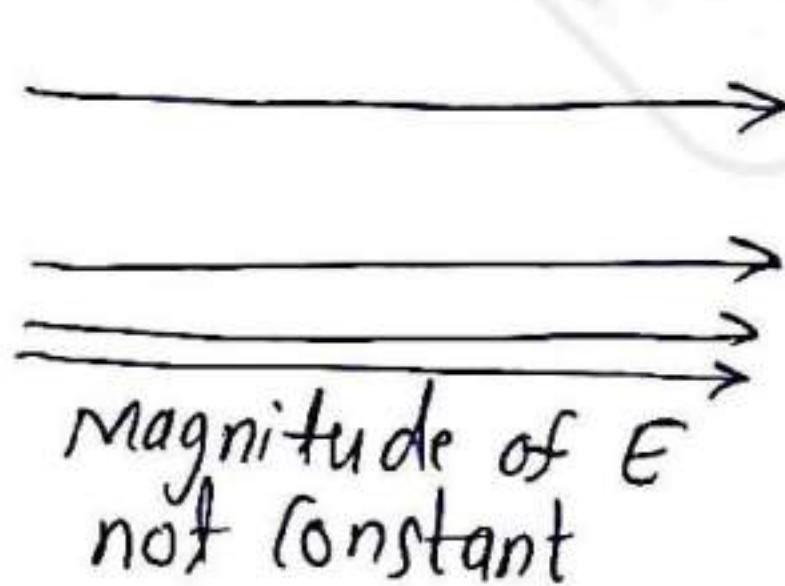 Magnitude of E
not constant